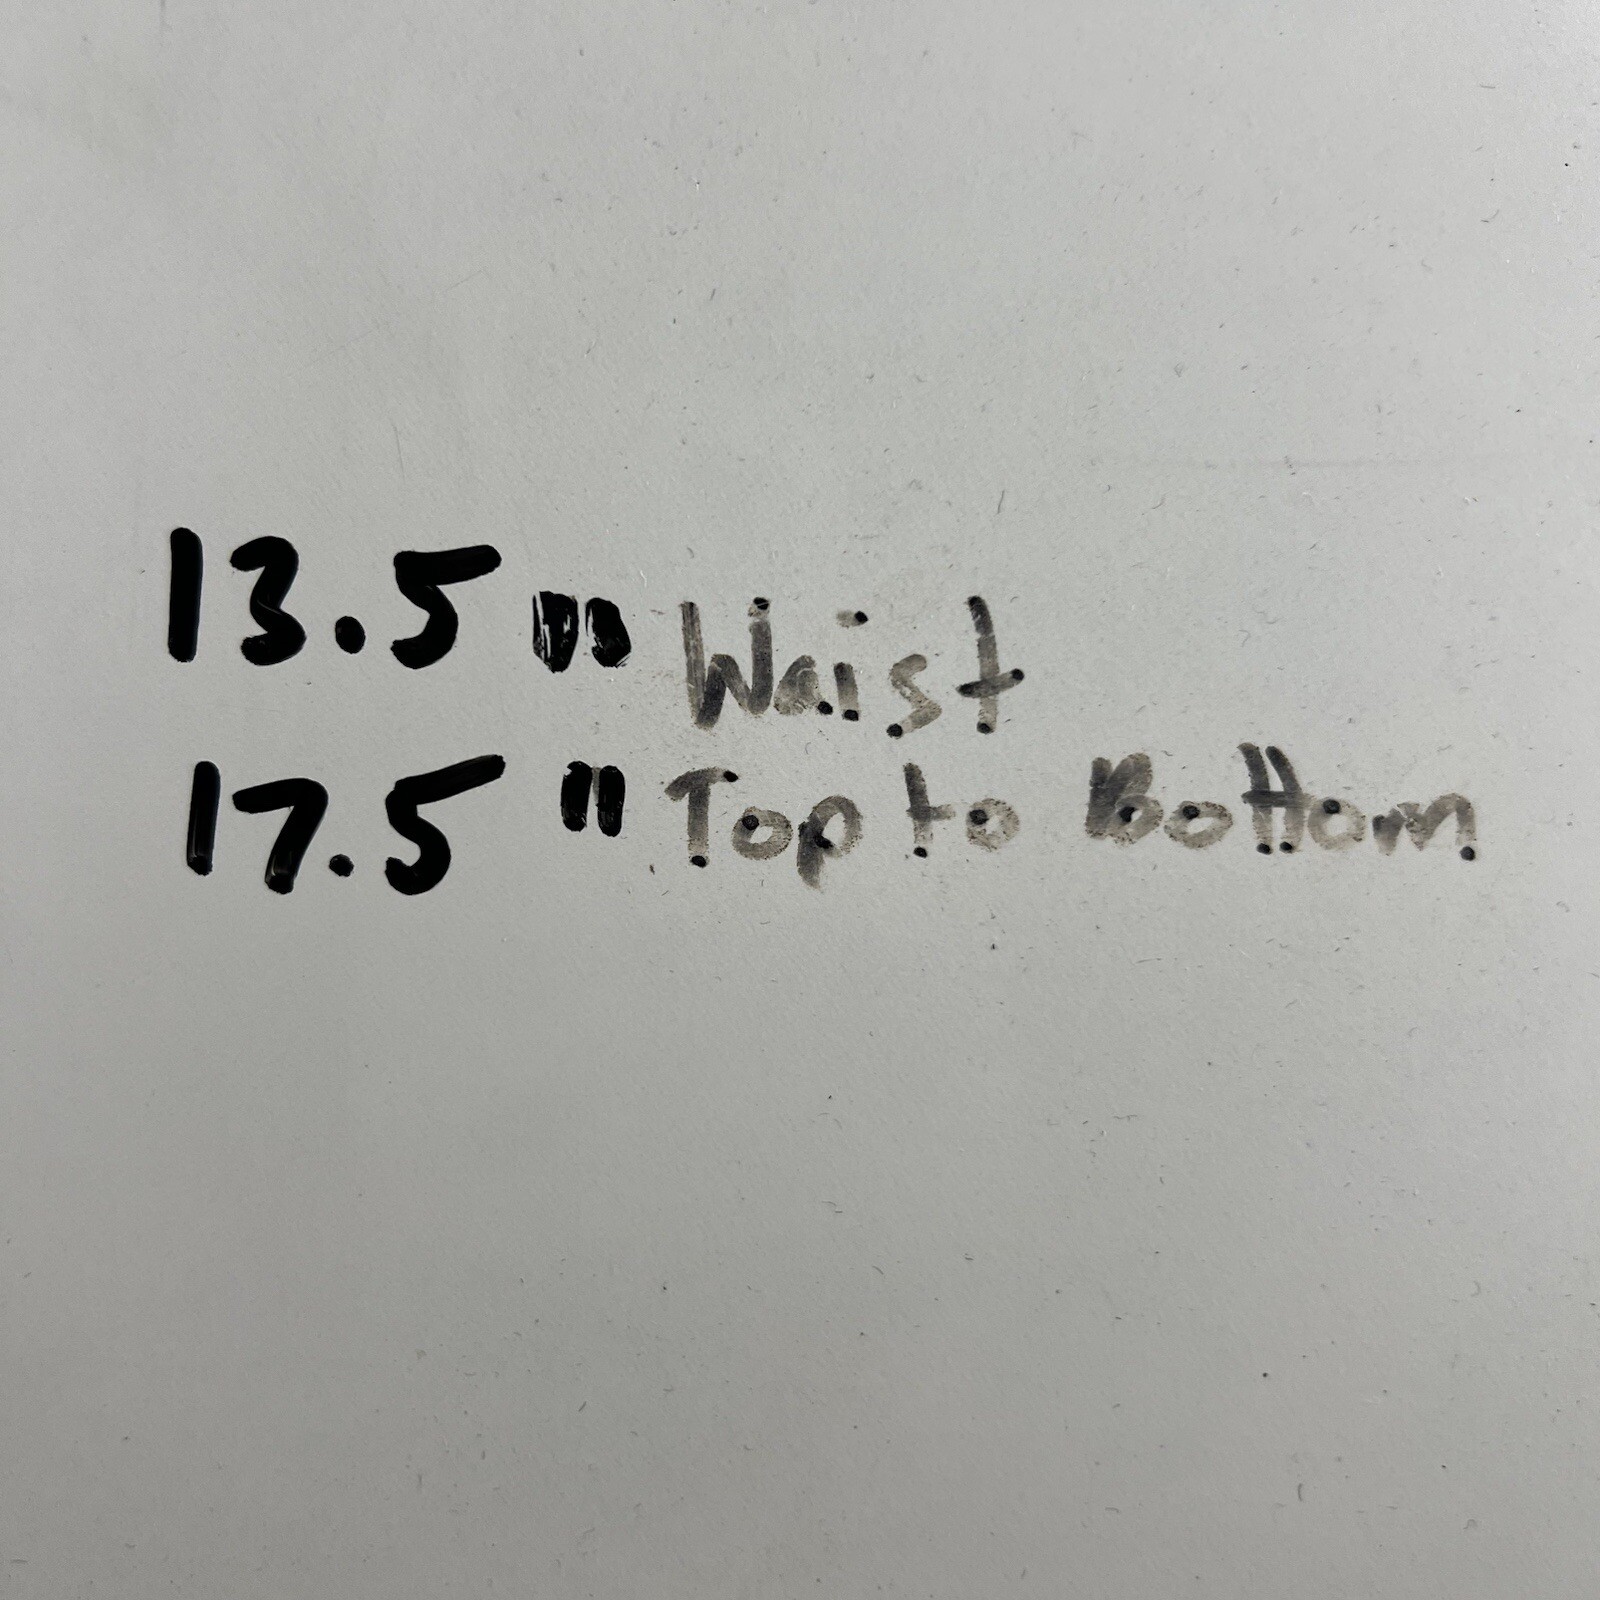 13.5" Waist
17.5" Top to Bottom